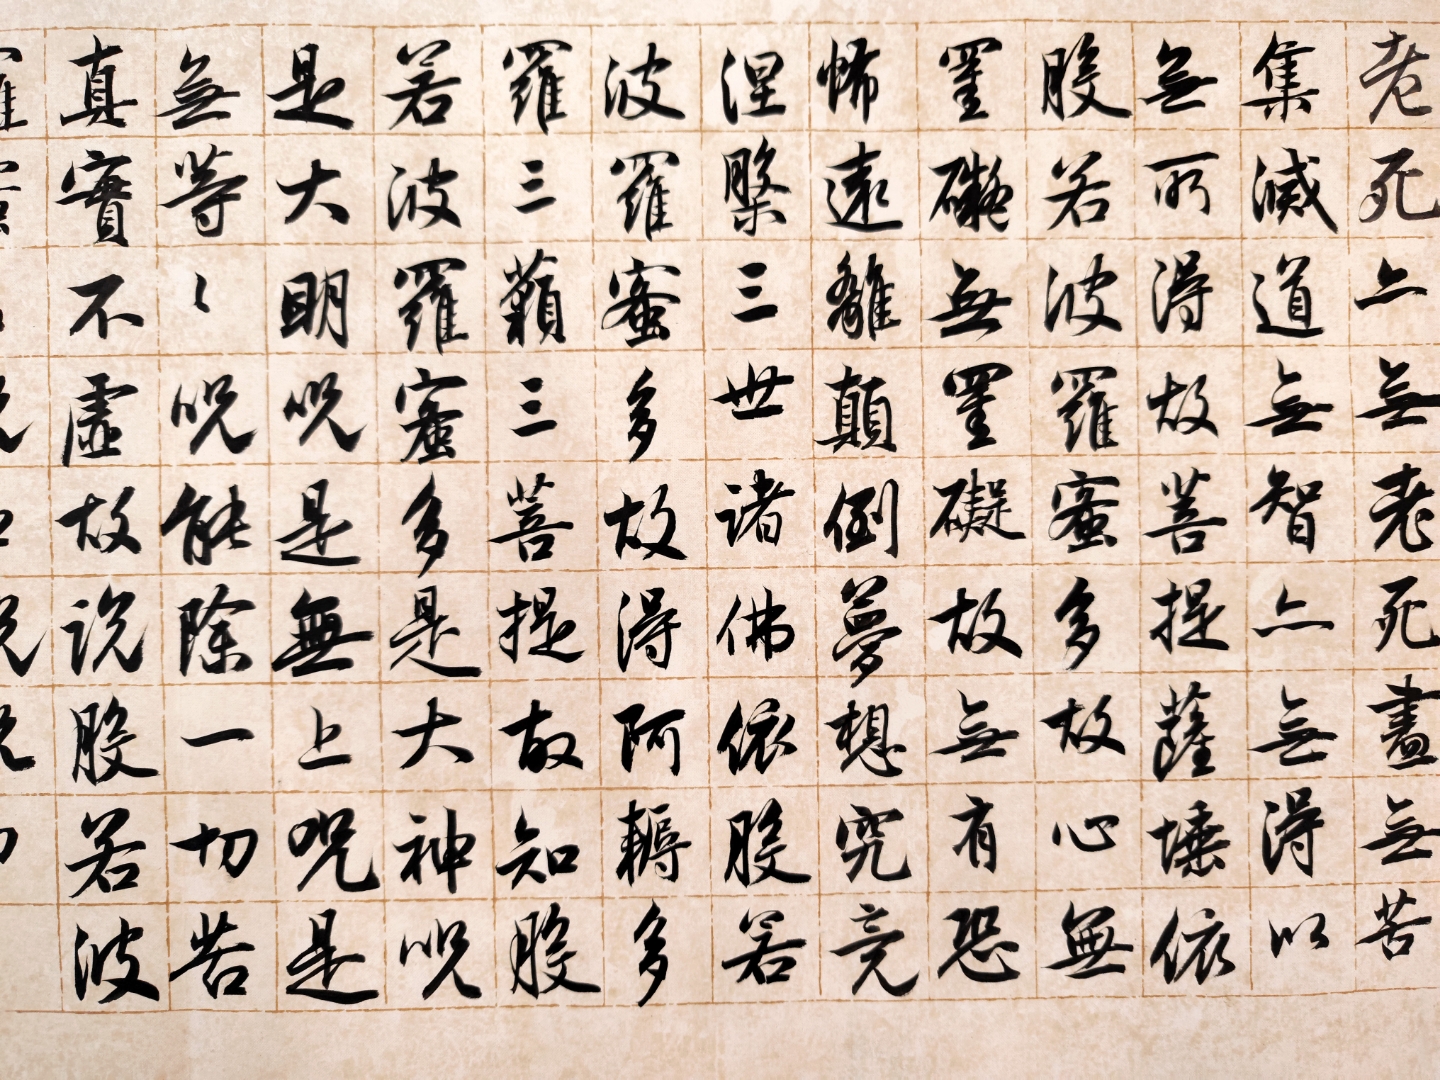 老死亦無老死盡無苦
集滅道無智亦無得以
無所得故菩提薩埵依
般若波羅蜜多故心無
罣礙無罣礙故無有恐
怖遠離顛倒夢想究竟
涅槃三世諸佛依般若
波羅蜜多故得阿耨多
羅三藐三菩提故知般
若波羅蜜多是大神呪
是大明呪是無上呪是
無等々呪能除一切苦
真實不虛故説般若波